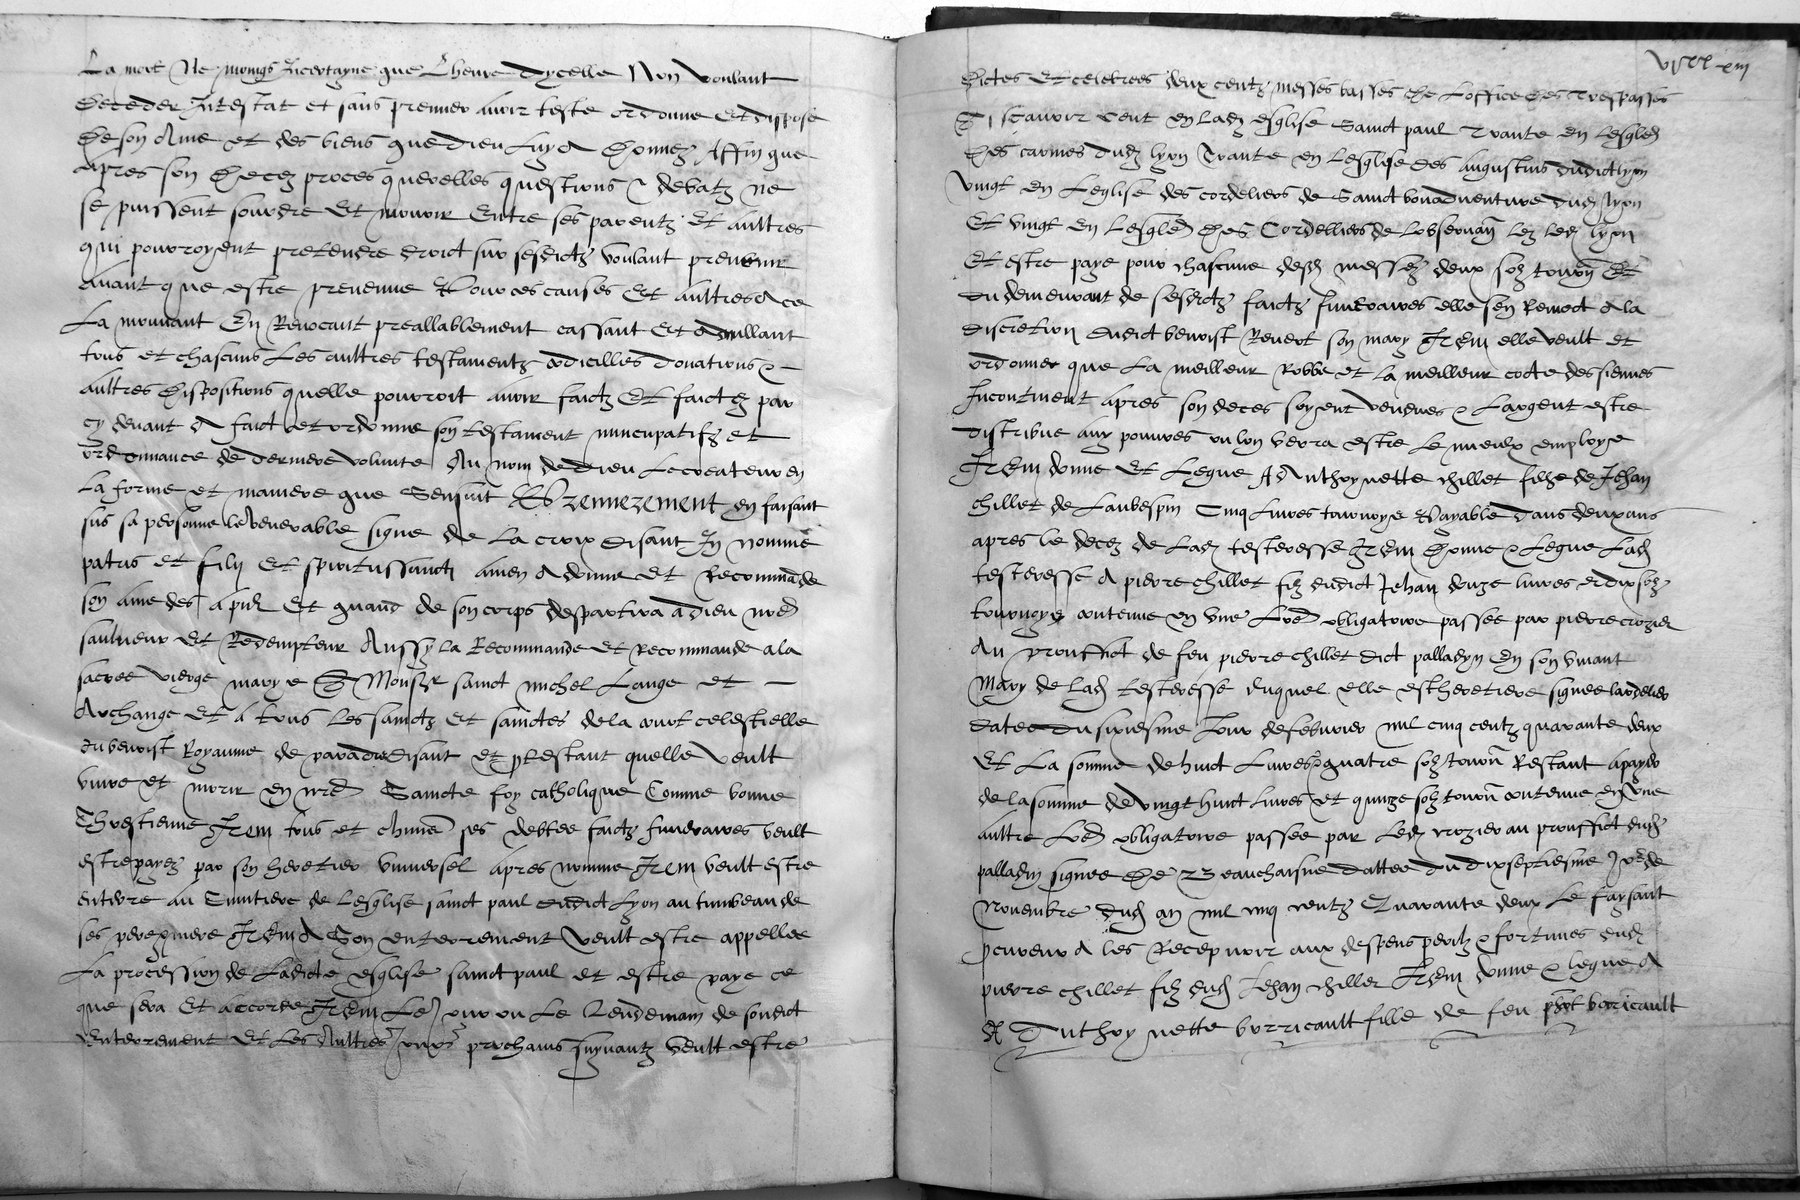 La mort Ne moings Incertayne que Lheure dycelle Non voulant
deceder Intestat et sans premier avoir teste ordonne et dispose
de son Ame et des biens que dieu luy a donnez Affin que
apres son decez proces querelles questions & debatz ne
se puissent sourdre et mouvoir entre ses parentz et aultres
qui pourroyent pretendre droict sur sesdictz voulant prevenir
avant que estre prevenue Pour ces causes et aultres a ce
La mouvant En Revocant preallablement cassant et adnullant
tous et chascuns Les aultres testamentz codicilles donations &
aultres dispositions quelle pourroit avoir faictz et faictes par
cy devant A faict et ordonne son testament nuncupatif et
ordonnance de derniere volunte Au nom de dieu Le createur en
La forme et maniere que Sensuit Premierement en faisant
sus sa personne le venerable signe de La croix disant In nomine
patris et filij Et spiritussancti amen A donne et Recommande
son ame des a pnt Et quand de son corps despartira a dieu nre
saulveur et Redempteur Aussy la Recommande et recommande a la
sacree vierge marye A Monsr sainct michel Lange et
Archange et a tous les sainctz et sainctes de la court celestielle
du benoist Royaume de paradis disant et protestant quelle veult
vivre et morir en nre Saincte foy catholique Comme bonne
Chrestienne Item tous et chuns ses debtes faictz funeraires veult
estre payez par son heretier universel apres nomme Item veult estre
enterre au Cimitiere de Lesglise sainct paul dudict Lyon au tumbeau de
ses pere & mere Item A Son enterrement veult estre appellee
La procession de Ladicte esglise sainct paul et estre paye ce
que sera Et accorde Item Le Jour ou Le Lendemain de sondict
Enterrement et les Aultres Jours prochains suyvantz veult estre
dictes Et celebrees deux centz messes basses de Loffice des Trespasses
A scavoir cent en lad esglise Sainct paul Trante en Lesgle
des carmes dud lyon Trante en Lesglise des augustins dudict lyon
vingt en Leglise des cordeliers de Sainct bonadventure dud lyon
Et vingt en Lesgle des Cordelliers de Lobservan Lez led lyon
Et estre paye pour chascune desd messes deux solz tourn Et
du demeurant de sesdictz faictz funeraires elle sen Remect a la
discretion dudict benoist Revert son mary Item elle veult et
ordonne que La meilleur Robbe et la meilleur cotte des siennes
Incontinent apres son deces soyent vendues & Largent estre
distribue aux pouvres ou lon verra estre Le mieulx employe
Item donne et Legue A Anthoynette chillet filhe de Jehan
chillet de Laubespin Cinq Livres tournoys Payable dans deux ans
apres le decez de Lad testeresse Item donne & Legue Lad
testeresse A pierre chillet filz dudict Jehan douze livres et dix solz
tournoys contenue en une Lre obligatoire passee par pierre crozier
Au prouffict de feu pierre chillet dict palladyn En son vivant
Mary de lad testeresse duquel elle est heretiere signee lardelier
datee du sixiesme Jour de febvrier mil cinq centz quarante deux
Et La somme de huict Livres & quatre solz tourn Restant a payer
de la somme de vingt huict Livres et quinze solz tourn contenue en une
aultre Lre obligatoire passee par Led crozier au prouffict dud
palladin signee De Beauchaisne dattee du dixseptiesme Jor de
Novembre dud an mil cinq centz Quarante deux Le faysant
pcureur A les Recepvoir aux despens perilz & fortunes dud
pierre chillet filz dud Jehan chillet Item donne & legue A
A Anthoynette borricault fille de feu borricault